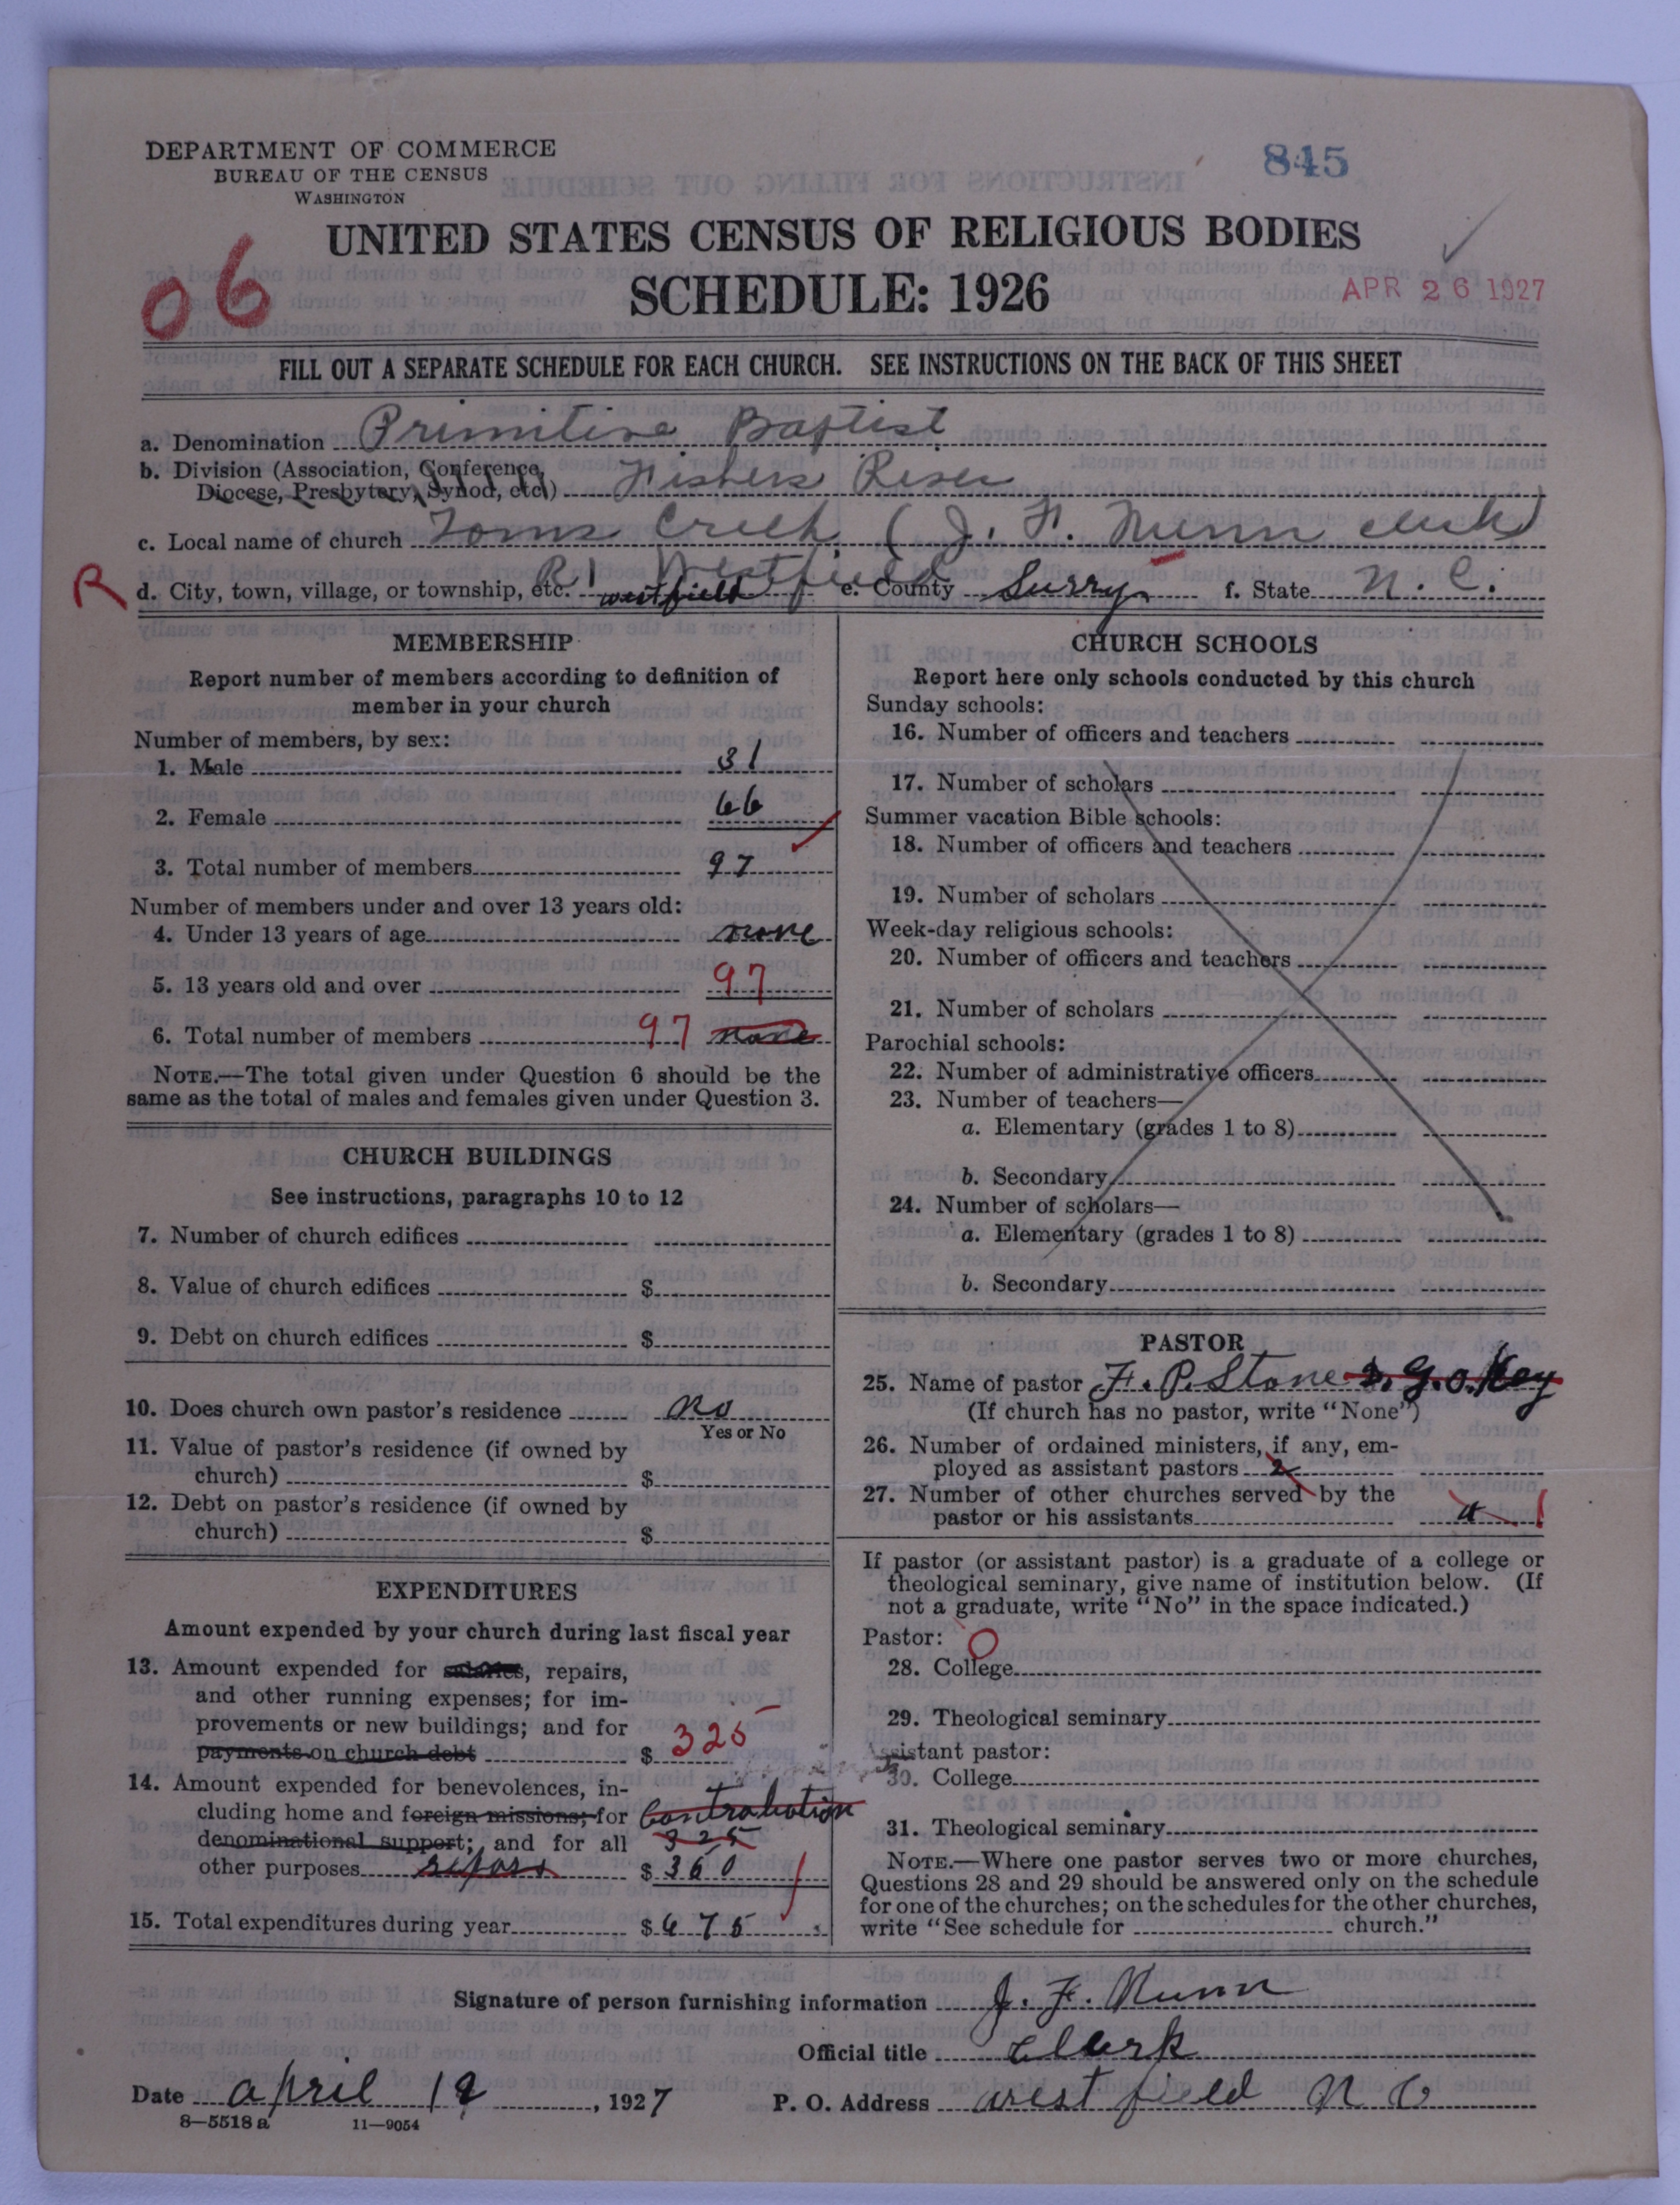 DEPARTMENT OF COMMERCE
BUREAU OF THE CENSUS
WASHINGTON
845
UNITED STATES CENSUS OF RELIGIOUS BODIES
SCHEDULE: 1926
06
APR 26 1927
FILL OUT A SEPARATE SCHEDULE FOR EACH CHURCH. SEE INSTRUCTIONS ON THE BACK OF THIS SHEET
a. Denomination Primitive Baptist
b. Division (Association, Conference,
Diocese, Presbytery, Synod, etc.) Fishers River
c. Local name of church Toms Creek, (J. F. Nunn clerk)
R d. City, town, village, or township, etc. R1 Westfield westfield e. County Surry f. State N. C.
MEMBERSHIP
Report number of members according to definition of
member in your church
Number of members, by sex:
1. Male 31
2. Female 66
3. Total number of members 97
Number of members under and over 13 years old:
4. Under 13 years of age none
5. 13 years old and over 97
6. Total number of members 97 none
NOTE.—The total given under Question 6 should be the
same as the total of males and females given under Question 3.
CHURCH BUILDINGS
See instructions, paragraphs 10 to 12
7. Number of church edifices
8. Value of church edifices $
9. Debt on church edifices $
10. Does church own pastor's residence No
Yes or No
11. Value of pastor's residence (if owned by
church) $
12. Debt on pastor's residence (if owned by
church) $
EXPENDITURES
Amount expended by your church during last fiscal year
13. Amount expended for salaries, repairs,
and other running expenses; for im-
provements or new buildings; and for
payments on church debt $ 325
14. Amount expended for benevolences, in-
cluding home and foreign missions; for Contrabution
denominational support; and for all 325
other purposes $ 360
15. Total expenditures during year $ 675
CHURCH SCHOOLS
Report here only schools conducted by this church
Sunday schools:
16. Number of officers and teachers
17. Number of scholars
Summer vacation Bible schools:
18. Number of officers and teachers
19. Number of scholars
Week-day religious schools:
20. Number of officers and teachers
21. Number of scholars
Parochial schools:
22. Number of administrative officers
23. Number of teachers—
a. Elementary (grades 1 to 8)
b. Secondary
24. Number of scholars—
a. Elementary (grades 1 to 8)
b. Secondary
PASTOR
25. Name of pastor F. P. Stone & G. O. Key
(If church has no pastor, write "None")
26. Number of ordained ministers, if any, em-
ployed as assistant pastors 2
27. Number of other churches served by the
pastor or his assistants 4 1
If pastor (or assistant pastor) is a graduate of a college or
theological seminary, give name of institution below. (If
not a graduate, write "No" in the space indicated.)
Pastor: 0
28. College
29. Theological seminary
Assistant pastor:
30. College
31. Theological seminary
NOTE.—Where one pastor serves two or more churches,
Questions 28 and 29 should be answered only on the schedule
for one of the churches; on the schedules for the other churches,
write "See schedule for church."
Signature of person furnishing information J. F. Nunn
Official title Clerk
Date april 19, 1927 P. O. Address west field N C
8—5518 a 11—9054